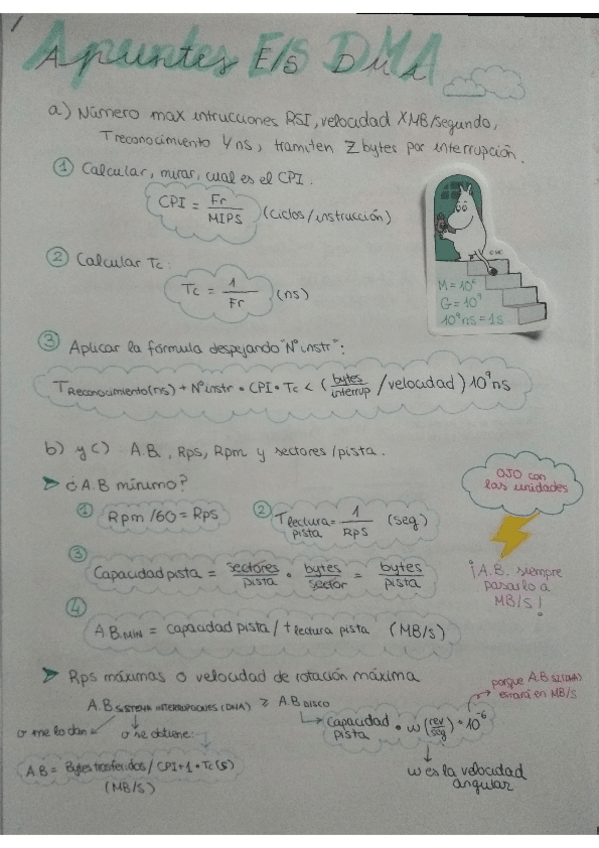 Apuntes E/S DMA
a) Número max intrucciones RSI, velocidad X MB/segundo,
T reconocimiento Y ns, tramiten Z bytes por interrupción.
① Calcular, mirar, cual es el CPI:
CPI = Fr / MIPS (ciclos / instrucción)
② Calcular Tc:
Tc = 1 / Fr (ns)
M = 10⁶
G = 10⁹
10⁹ns = 1s
③ Aplicar la fórmula despejando "Nº instr":
T Reconocimiento(ns) + Nº instr • CPI • Tc < ( bytes / interrup / velocidad ) 10⁹ ns
b) y c) A.B., Rps, Rpm y sectores / pista.
➤ ¿A.B mínimo?
① Rpm / 60 = Rps
② T lectura pista = 1 / RPS (seg)
OJO con
las unidades
③ Capacidad pista = sectores / pista • bytes / sector = bytes / pista
¡A.B. siempre
pasarlo a
MB/S!
④ A.B. MIN = capacidad pista / t lectura pista (MB/s)
➤ Rps máximas o velocidad de rotación máxima
porque A.B SI(DMA)
estará en MB/S
A.B SISTEMA INTERRUPCIONES (DMA) ≥ A.B DISCO
Capacidad pista • w (rev / seg) • 10⁻⁶
o me lo dan
o se obtiene:
w es la velocidad
angular
A.B = Bytes trasferidos / CPI+1 • Tc (s)
(MB/s)